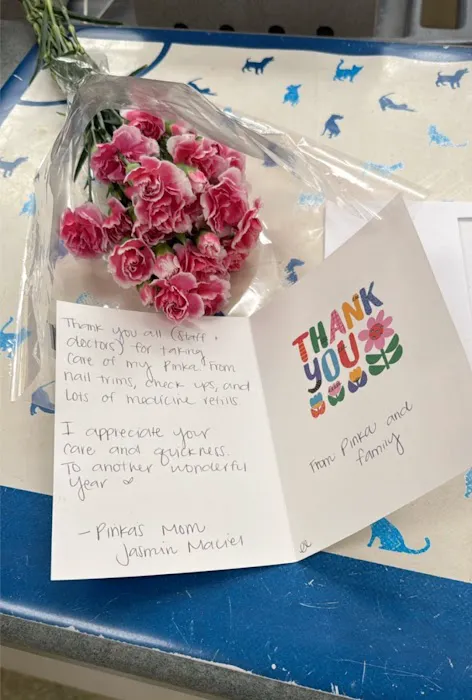 Thank you all (staff +
doctors) for taking
care of my Pinka. From
nail trims, check ups, and
lots of medicine refills
I appreciate your
care and quickness.
To another wonderful
year
- Pinkas Mom
Jasmin Maciel
THANK
YOU
From Pinka and
family